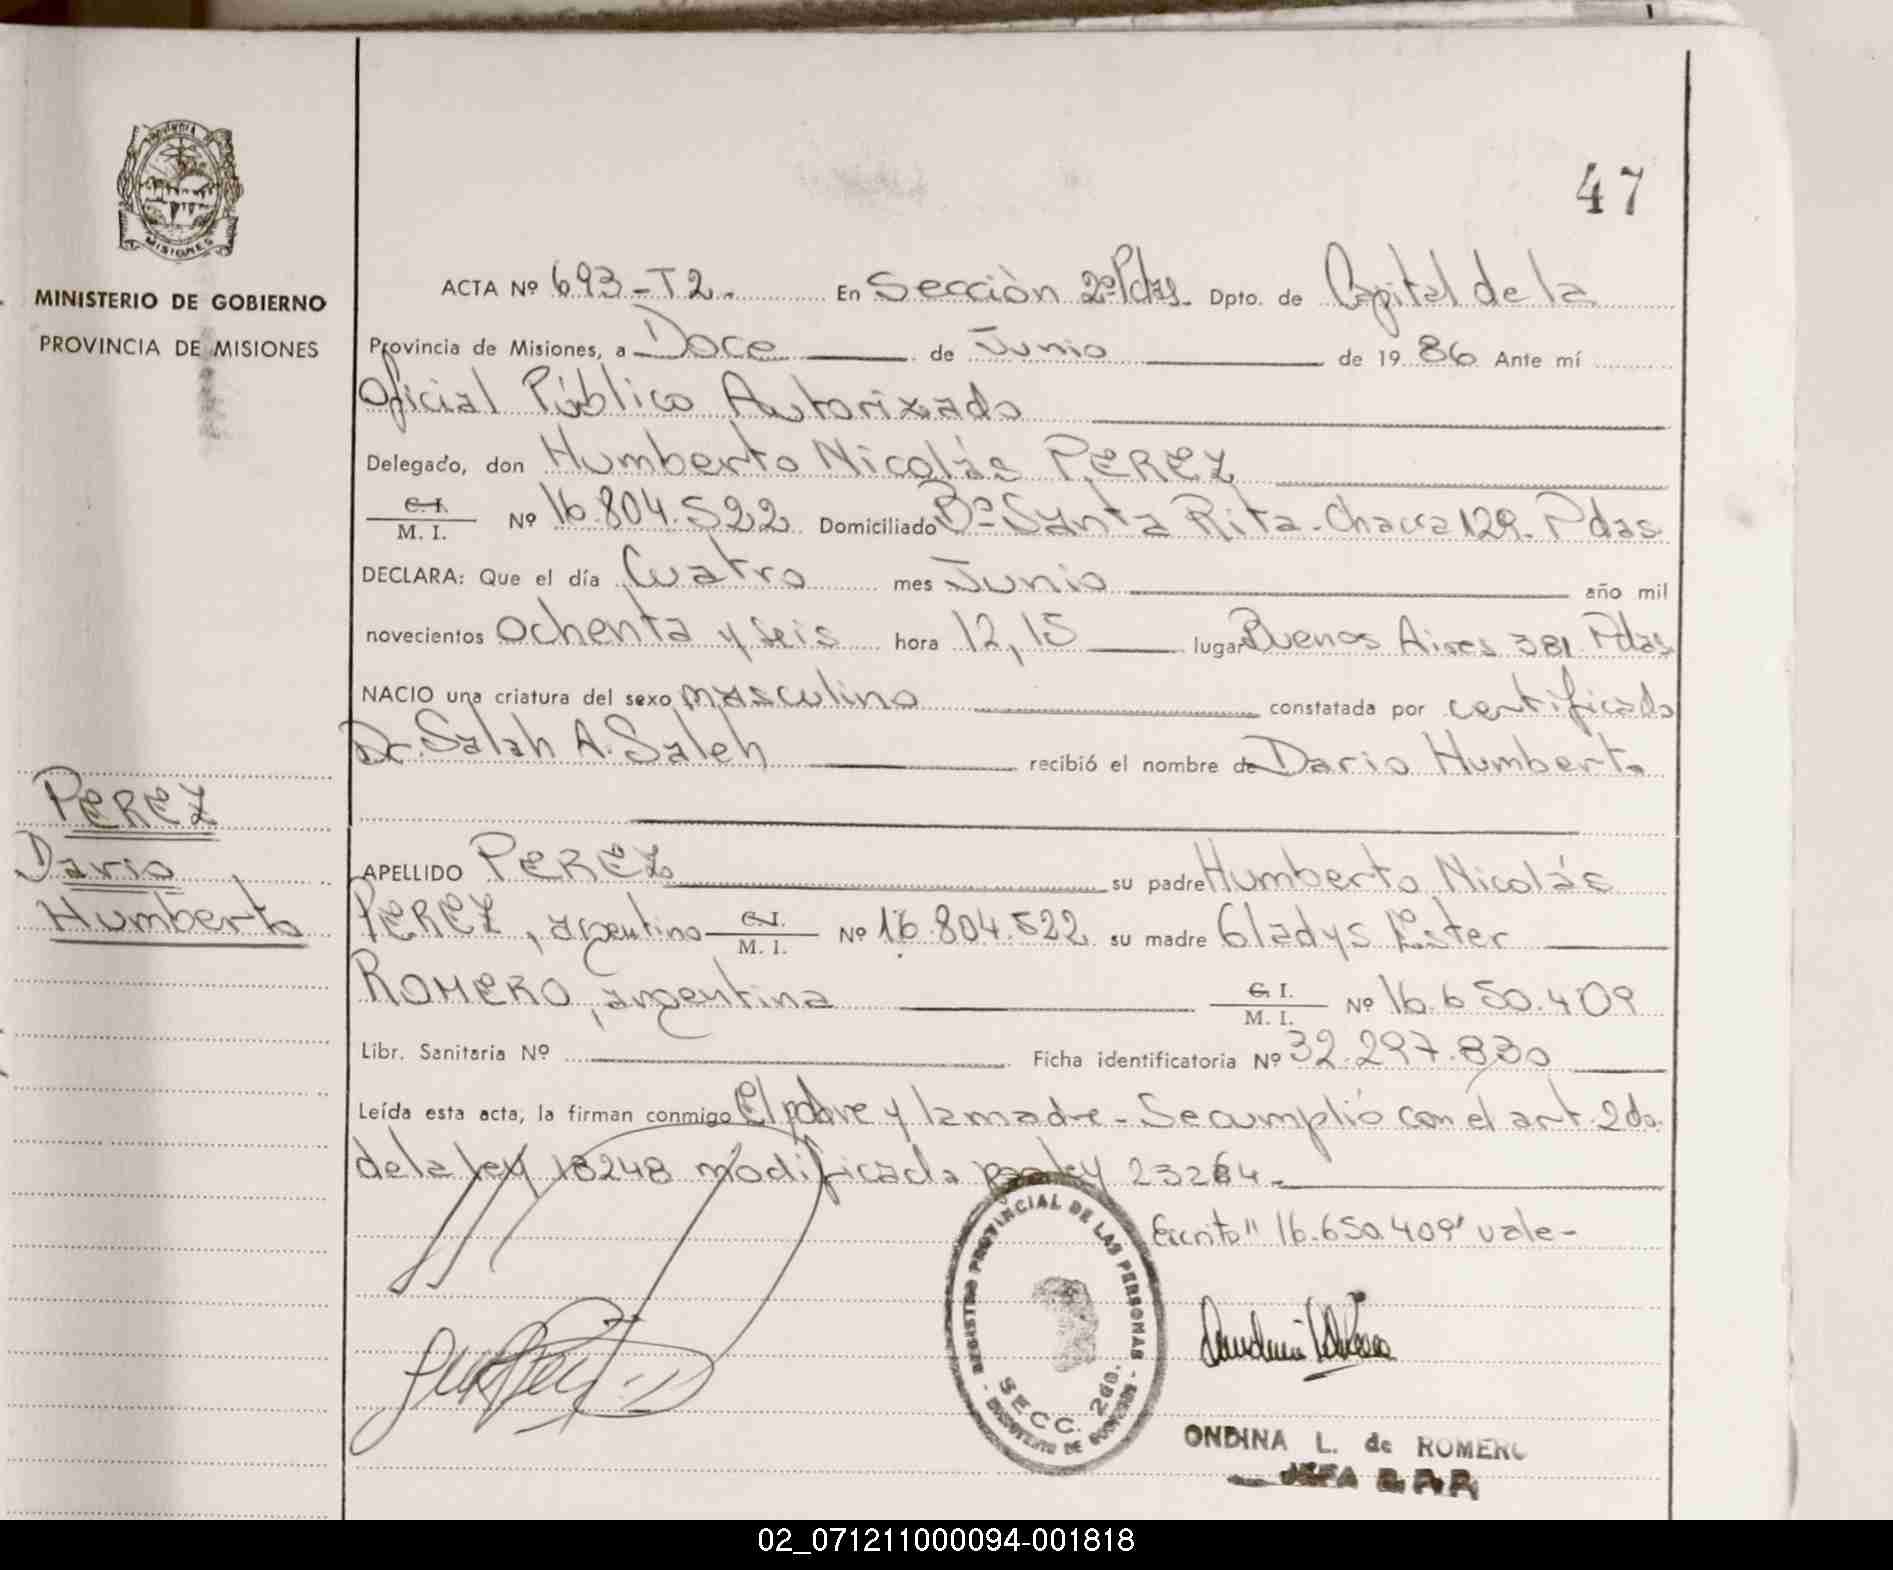 47
MISIONES
MINISTERIO DE GOBIERNO
PROVINCIA DE MISIONES
ACTA Nº 693-T2. En Sección 2º Pdas. Dpto. de Capital de la
Provincia de Misiones, a Doce de Junio de 19 86 Ante mí
Oficial Público Autorizado
Delegado, don Humberto Nicolás PEREZ
C.I. M. I. Nº 16.804.522 Domiciliado Bº Santa Rita-Chacra 129. Pdas
DECLARA: Que el día Cuatro mes Junio año mil
novecientos ochenta y seis hora 12,15 lugar Buenos Aires 381 Pdas
NACIO una criatura del sexo masculino constatada por certificado
Dr. Salah A. Saleh recibió el nombre de Dario Humberto
PEREZ
Dario
Humberto
APELLIDO PEREZ su padre Humberto Nicolás
PEREZ, argentino C.I. M. I. Nº 16.804.522 su madre Gladys Ester
ROMERO, argentina C.I. M. I. Nº 16.650.409
Libr. Sanitaria Nº Ficha identificatoria Nº 32.297.830
Leída esta acta, la firman conmigo El padre y la madre - Se cumplió con el art. 2do.
de la ley 18248 modificada por ley 23264.
Escrito "16.650.409" vale-
REGISTRO PROVINCIAL DE LAS PERSONAS
SECC. 2da.
MINISTERIO DE GOBIERNO
ONDINA L. de ROMERO
JEFA R.P.P.
02_071211000094-001818